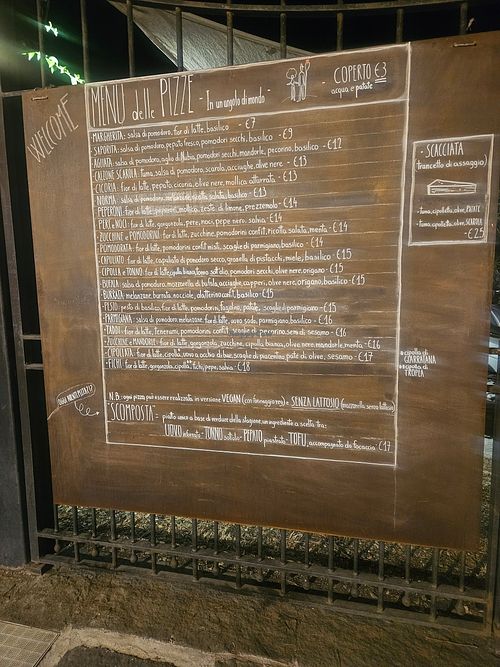 WELCOME
MENÙ delle PIZZE "In un angolo di mondo"
COPERTO €3
acqua e patate
MARGHERITA: salsa di pomodoro, fior di latte, basilico - €7
SAPORITA: salsa di pomodoro, pepato fresco, pomodori secchi, basilico - €9
AGLIATA: salsa di pomodoro, aglio di Nubia, pomodori secchi, mandorle, pecorino, basilico - €12
CALZONE SCAROLA: tuma, salsa di pomodoro, scarola, acciughe, olive nere - €13
CICORIA: fior di latte, pepato, cicoria, olive nere, mollica atturrata - €13
NORMA: salsa di pomodoro, ricotta salata, basilico - €13
PEPERONI: fior di latte, peperoni, mollica, zeste di limone, prezzemolo - €14
PERE E NOCI: fior di latte, gorgonzola, pere, noci, pepe nero, salvia - €14
ZUCCHINE e POMODORINI: fior di latte, zucchine, pomodorini confit, ricotta salata, menta - €14
POMODORATA: fior di latte, pomodorini confit misti, scaglie di parmigiano, basilico - €14
CAPULIATO: fior di latte, capuliato di pomodoro secco, granella di pistacchi, miele, basilico - €15
CIPOLLA e TONNO: fior di latte, cipolla bianca, tonno sott'olio, pomodori secchi, olive nere, origano - €15
- BUFALA: salsa di pomodoro, mozzarella di bufala, acciughe, capperi, olive nere, origano, basilico - €15
- BURRATA: melanzane, burrata, nocciole, datterino confit, basilico - €15
- PESTO: pesto di basilico, fior di latte, pomodorini, fagiolino, patate, scaglie di parmigiano - €15
- PARMIGIANA: salsa di pomodoro, melanzane, fior di latte, uovo sodo, parmigiano, basilico - €16
- TADDU: fior di latte, Tenerumi, pomodorini confit, scaglie di pecorino, semi di sesamo - €16
- ZUCCHINE e MANDORLE: fior di latte, gorgonzola, zucchine, cipolla bianca, olive nere, mandorle, menta - €16
- CIPOLLATA: fior di latte, cipolla, uovo a occhio di bue, scaglie di piacentino, paté di olive, sesamo - €17
- FICHI: fior di latte, gorgonzola, cipolla, fichi, pepe, salvia - €18
N.B.: ogni pizza può essere realizzata in versione VEGAN (con formaggio veg) o SENZA LATTOSIO (mozzarella senza lattosio)
SCOMPOSTA: piatto unico a base di verdure della stagione, un ingrediente a scelta tra:
UOVO TONNO sott'olio - PEPATO TOFU, accompagnato da focaccia €17
- SCACCIATA
(trancetto di assaggio)
- tuma, cipolletta, olive, PATATE
- tuma, cipolletta, olive, SCAROLA
- €2.5
cipolla di GIARRATANA
cipolla di TROPEA